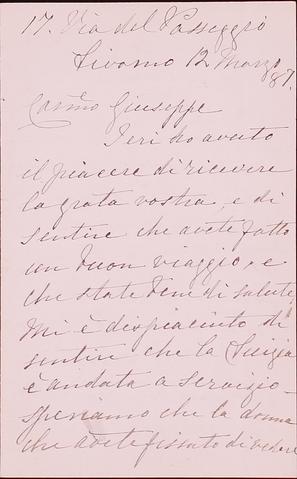 17. Via del Passeggio
Livorno 12 Marzo
87.
Carmo Giuseppe
Ieri ho avuto
il piacere di ricevere
la grata vostra, e di
sentire che avete fatto
un buon viaggio, e
che state bene di salute,
Mi è dispiaciuto di
sentire che la Luigia
è andata a servizio
speriamo che la donna
che avete fissato di vedere